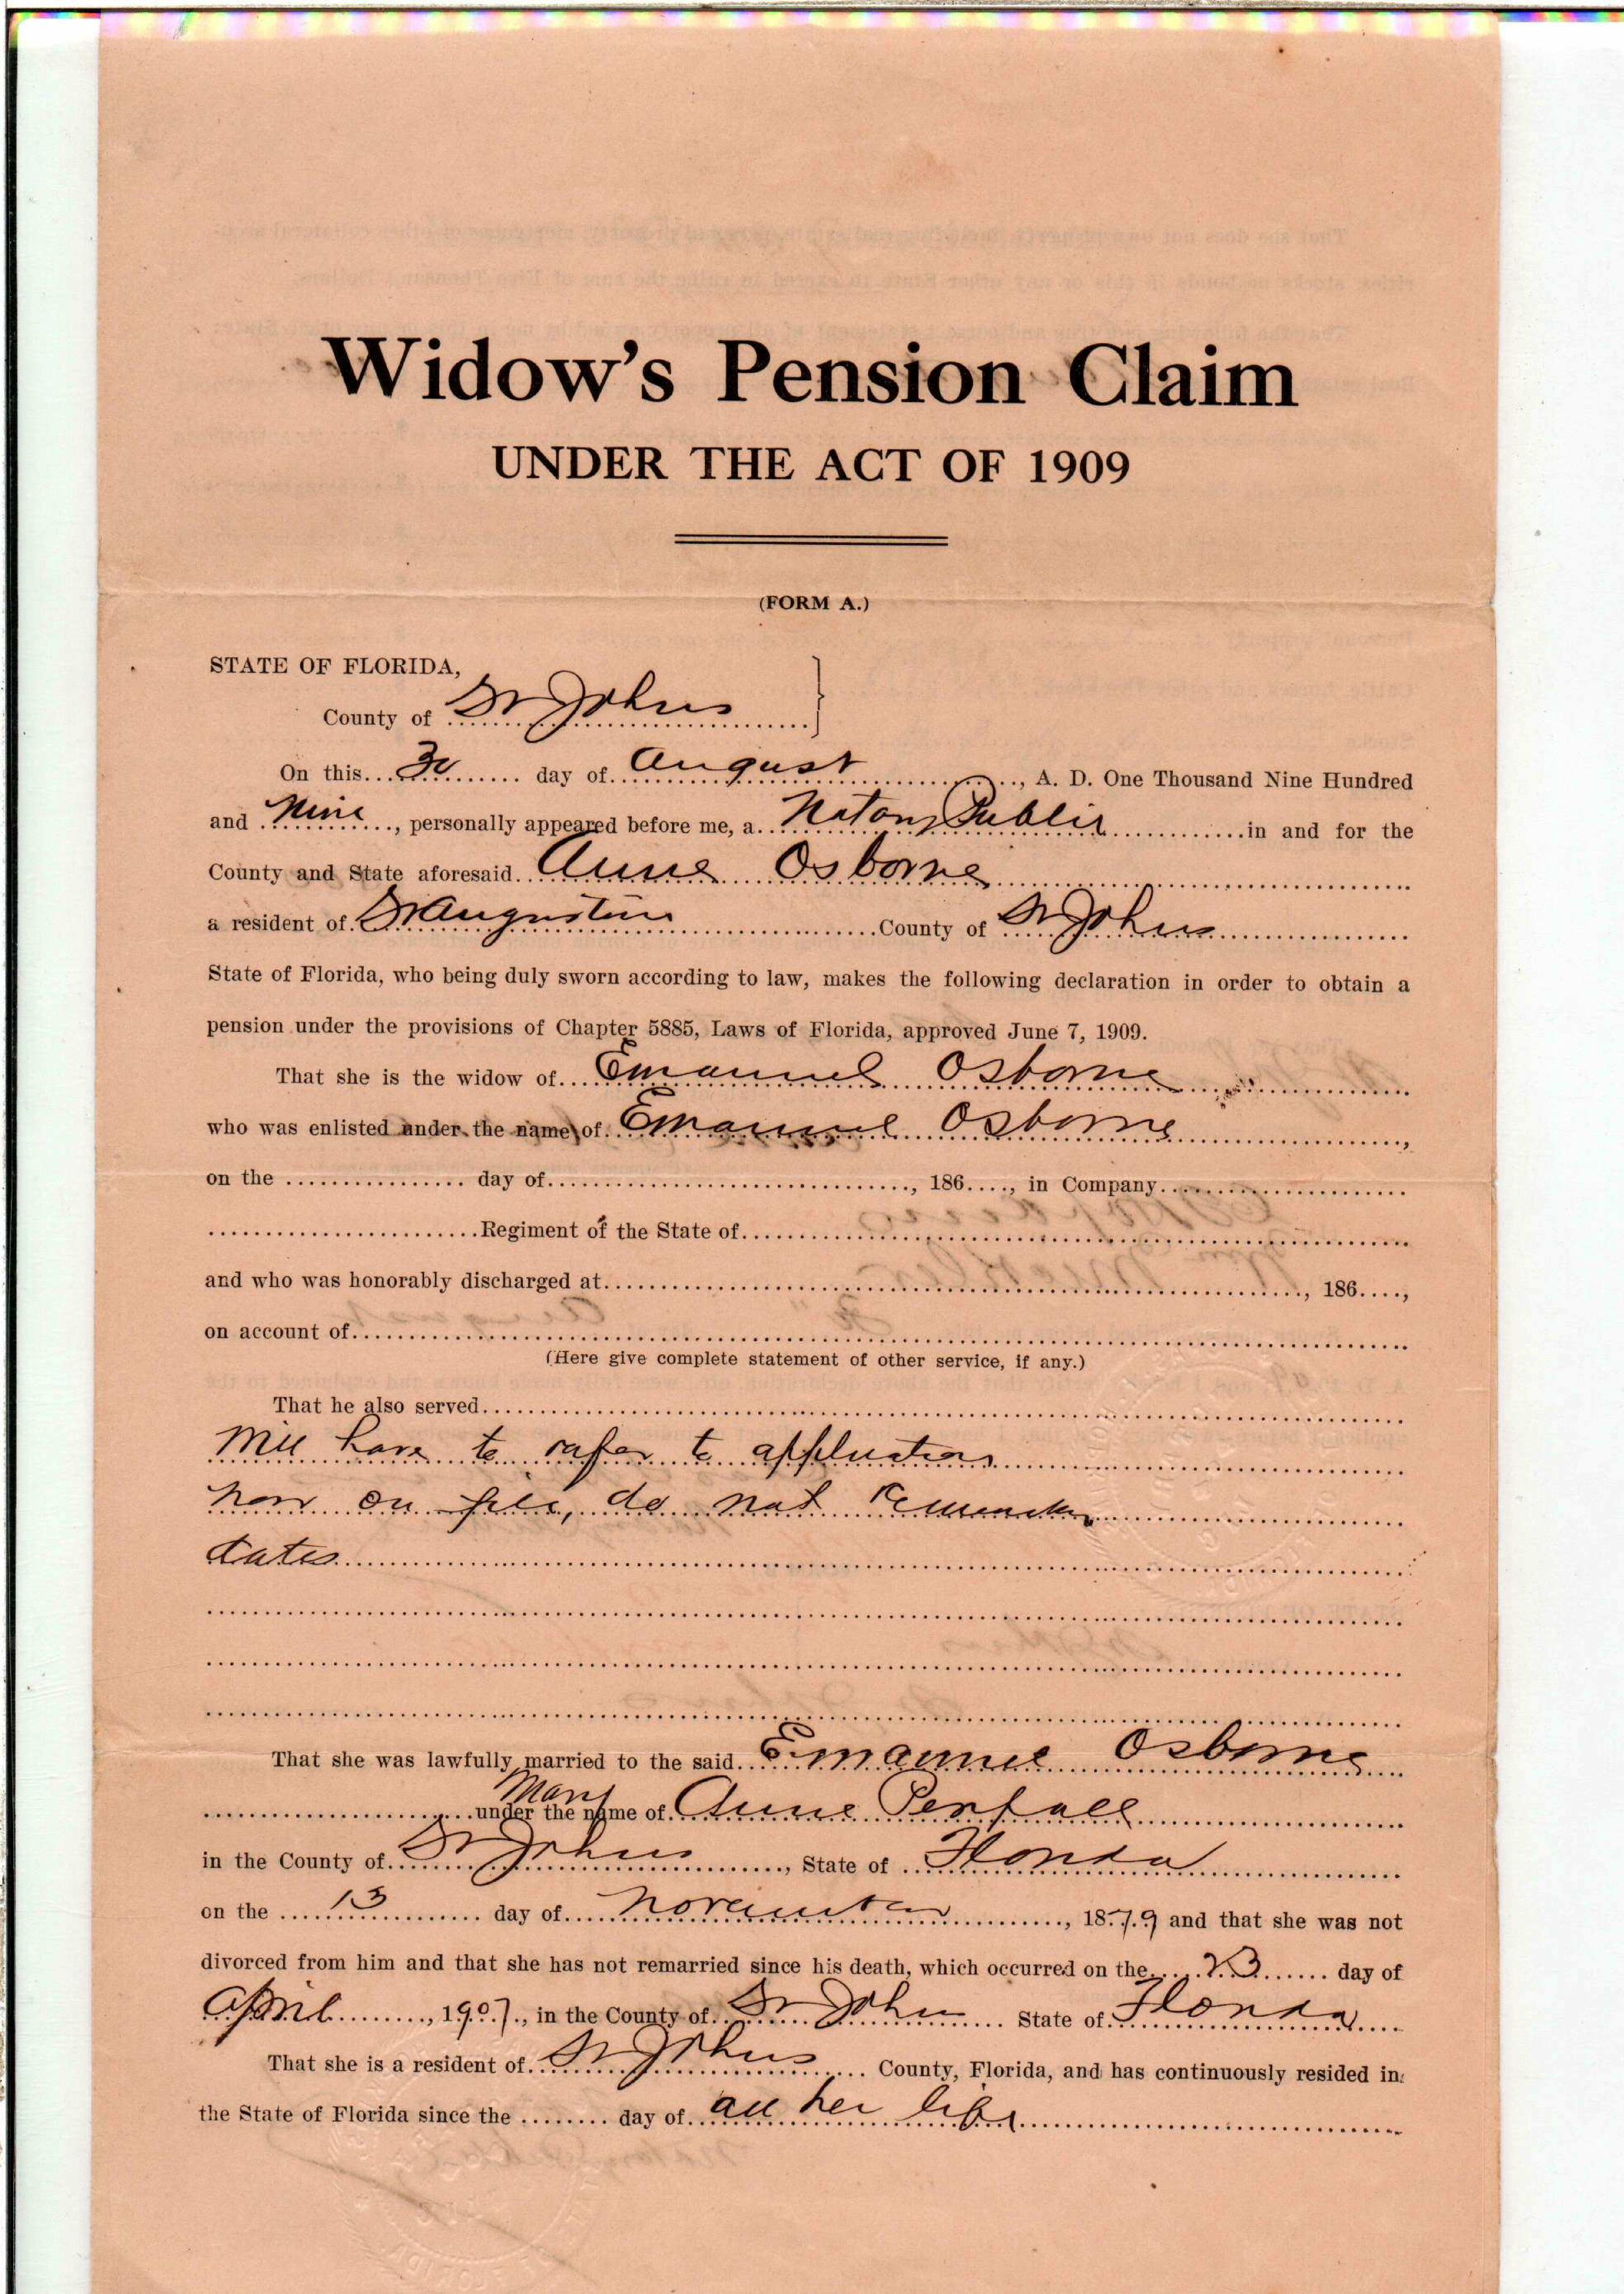 Widow's Pension Claim
UNDER THE ACT OF 1909
(FORM A.)
STATE OF FLORIDA,
County of St Johns
On this 30 day of August, A. D. One Thousand Nine Hundred
and Nine, personally appeared before me, a Notary Public in and for the
County and State aforesaid Anne Osborne
a resident of St Augustine County of St Johns
State of Florida, who being duly sworn according to law, makes the following declaration in order to obtain a
pension under the provisions of Chapter 5885, Laws of Florida, approved June 7, 1909.
That she is the widow of Emanuel Osborne
who was enlisted under the name of Emanuel Osborne,
on the ................ day of ................, 186...., in Company................
................Regiment of the State of................
and who was honorably discharged at................, 186....,
on account of................
(Here give complete statement of other service, if any.)
That he also served................
Will have to refer to application
now on file, do not remember
dates
That she was lawfully married to the said Emanuel Osborne
Mary
under the name of Anne Penfall
in the County of St Johns, State of Florida
on the 13 day of November, 1879 and that she was not
divorced from him and that she has not remarried since his death, which occurred on the 23 day of
April, 1907, in the County of St Johns State of Florida
That she is a resident of St Johns County, Florida, and has continuously resided in
the State of Florida since the ........ day of all her life